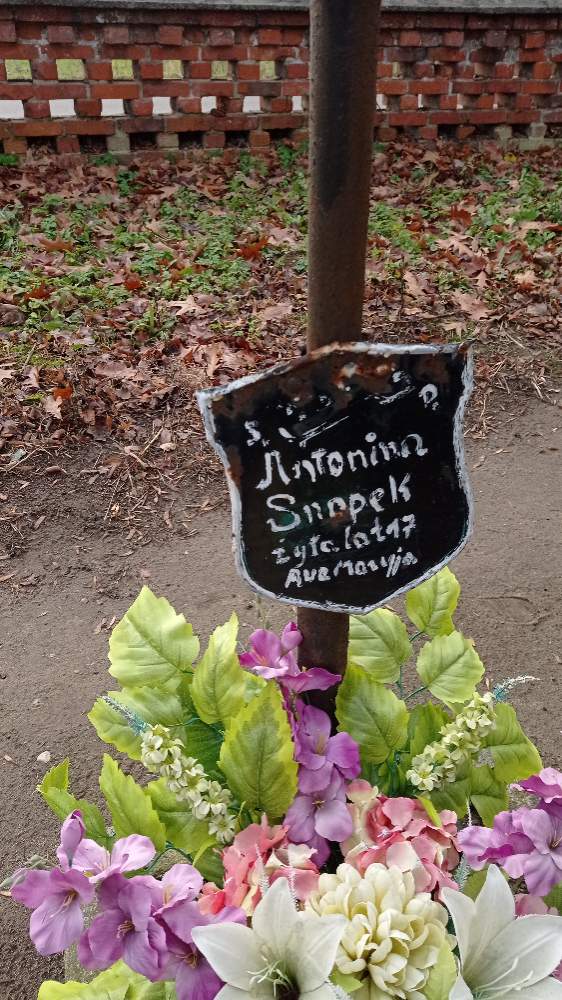 Ś. P.
Antonina
Snopek
żyła lat 17
Ave Maryja